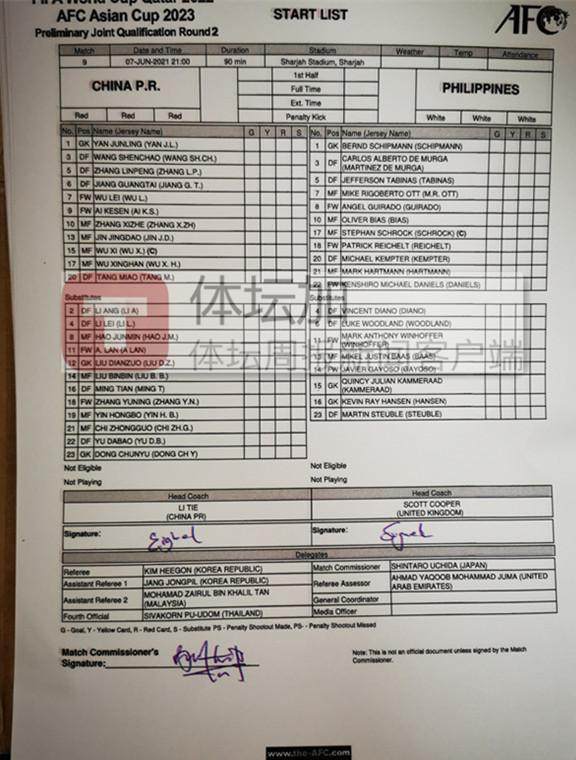 AFC Asian Cup 2023
Preliminary Joint Qualification Round 2
START LIST
AFC
Match Date and Time Duration Stadium Weather Temp Attendance
9 07-JUN-2021 21:00 90 min Sharjah Stadium, Sharjah
CHINA P.R.
1st Half
Full Time
Ext. Time
Penalty Kick
PHILIPPINES
Red Red Red
White White White
No. Pos Name (Jersey Name) G Y R S
1 GK YAN JUNLING (YAN J.L.)
3 DF WANG SHENCHAO (WANG SH.CH.)
5 DF ZHANG LINPENG (ZHANG L.P.)
6 DF JIANG GUANGTAI (JIANG G. T.)
7 FW WU LEI (WU L.)
9 FW AI KESEN (AI K.S.)
10 MF ZHANG XIZHE (ZHANG X.ZH)
13 MF JIN JINGDAO (JIN J.D.)
15 MF WU XI (WU X.) (C)
17 MF WU XINGHAN (WU X. H.)
20 DF TANG MIAO (TANG M.)
Substitutes
2 DF LI ANG (LI A)
4 DF LI LEI (LI L.)
8 MF HAO JUNMIN (HAO J.M.)
11 FW A. LAN (A LAN)
12 GK LIU DIANZUO (LIU D.Z.)
14 MF LIU BINBIN (LIU B. B.)
16 DF MING TIAN (MING T)
18 FW ZHANG YUNING (ZHANG Y.N.)
19 MF YIN HONGBO (YIN H. B.)
21 MF CHI ZHONGGUO (CHI ZH.G.)
22 DF YU DABAO (YU D.B.)
23 GK DONG CHUNYU (DONG CH Y)
Not Eligible
Not Playing
No. Pos Name (Jersey Name) G Y R S
1 GK BERND SCHIPMANN (SCHIPMANN)
3 DF CARLOS ALBERTO DE MURGA
(MARTINEZ DE MURGA)
5 DF JEFFERSON TABINAS (TABINAS)
7 MF MIKE RIGOBERTO OTT (M.R. OTT)
8 FW ANGEL GUIRADO (GUIRADO)
10 MF OLIVER BIAS (BIAS)
17 MF STEPHAN SCHROCK (SCHROCK) (C)
18 FW PATRICK REICHELT (REICHELT)
20 DF MICHAEL KEMPTER (KEMPTER)
21 MF MARK HARTMANN (HARTMANN)
22 FW KENSHIRO MICHAEL DANIELS (DANIELS)
Substitutes
DF VINCENT DIANO (DIANO)
DF LUKE WOODLAND (WOODLAND)
11 FW MARK ANTHONY WINHOFFER
(WINHOFFER)
13 MF MIKEL JUSTIN BAAS (BAAS)
14 FW JAVIER GAYOSO (GAYOSO)
15 GK QUINCY JULIAN KAMMERAAD
(KAMMERAAD)
16 GK KEVIN RAY HANSEN (HANSEN)
23 DF MARTIN STEUBLE (STEUBLE)
Not Eligible
Not Playing
体坛加
体坛周报新闻客户端
Head Coach
LI TIE
(CHINA PR)
Signature:
Head Coach
SCOTT COOPER
(UNITED KINGDOM)
Signature:
Delegates
Referee KIM HEEGON (KOREA REPUBLIC)
Assistant Referee 1 JANG JONGPIL (KOREA REPUBLIC)
Assistant Referee 2 MOHAMAD ZAIRUL BIN KHALIL TAN
(MALAYSIA)
Fourth Official SIVAKORN PU-UDOM (THAILAND)
Match Commissioner SHINTARO UCHIDA (JAPAN)
Referee Assessor AHMAD YAQOOB MOHAMMAD JUMA (UNITED
ARAB EMIRATES)
General Coordinator
Media Officer
G - Goal, Y - Yellow Card, R - Red Card, S - Substitute PS - Penalty Shootout Made, PS- - Penalty Shootout Missed
Match Commissioner's
Signature:
Note: This is not an official document unless signed by the Match
Commissioner.
www.the-AFC.com